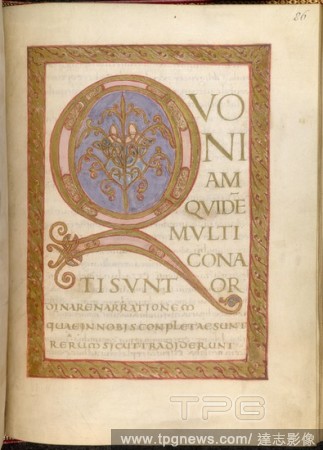 86
QVO
NI
AM
QVIDĒ
MVLTI
CONA
TISVNT OR
DINARENARRATIONEM
QUAEINNOBISCONPLETAESUNT
RERUMSICUTTRADIDERUNT
TPG
www.tpgnews.com/ 達志影像